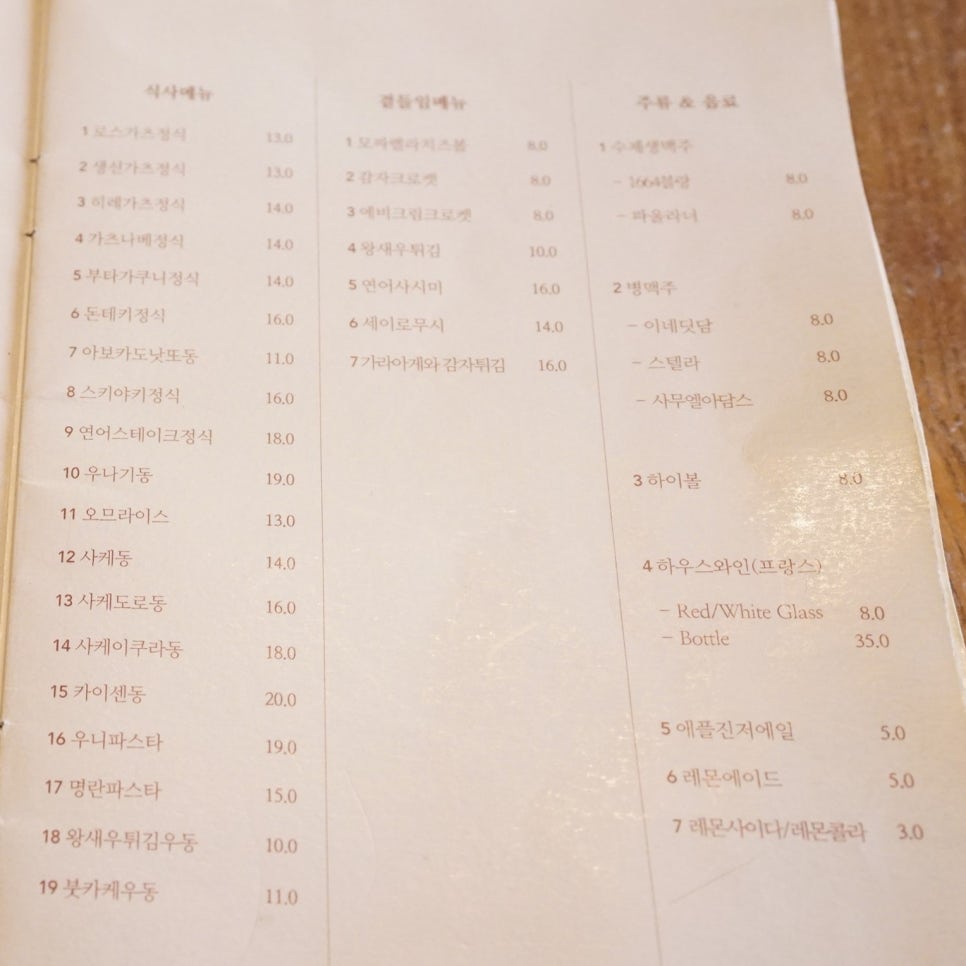 식사메뉴
1 로스가츠정식 13.0
2 생선가츠정식 13.0
3 히레가츠정식 14.0
4 가츠나베정식 14.0
5 부타가쿠니정식 14.0
6 돈테키정식 16.0
7 아보카도낫또동 11.0
8 스키야키정식 16.0
9 연어스테이크정식 18.0
10 우나기동 19.0
11 오므라이스 13.0
12 사케동 14.0
13 사케도로동 16.0
14 사케이쿠라동 18.0
15 카이센동 20.0
16 우니파스타 19.0
17 명란파스타 15.0
18 왕새우튀김우동 10.0
19 붓카케우동 11.0
곁들임메뉴
1 모짜렐라치즈볼 8.0
2 감자크로켓 8.0
3 에비크림크로켓 8.0
4 왕새우튀김 10.0
5 연어사시미 16.0
6 세이로무시 14.0
7 가라아게와 감자튀김 16.0
주류 & 음료
1 수제생맥주
– 1664블랑 8.0
– 파울라너 8.0
2 병맥주
– 이네딧담 8.0
– 스텔라 8.0
– 사무엘아담스 8.0
3 하이볼 8.0
4 하우스와인(프랑스)
– Red/White Glass 8.0
– Bottle 35.0
5 애플진저에일 5.0
6 레몬에이드 5.0
7 레몬사이다/레몬콜라 3.0